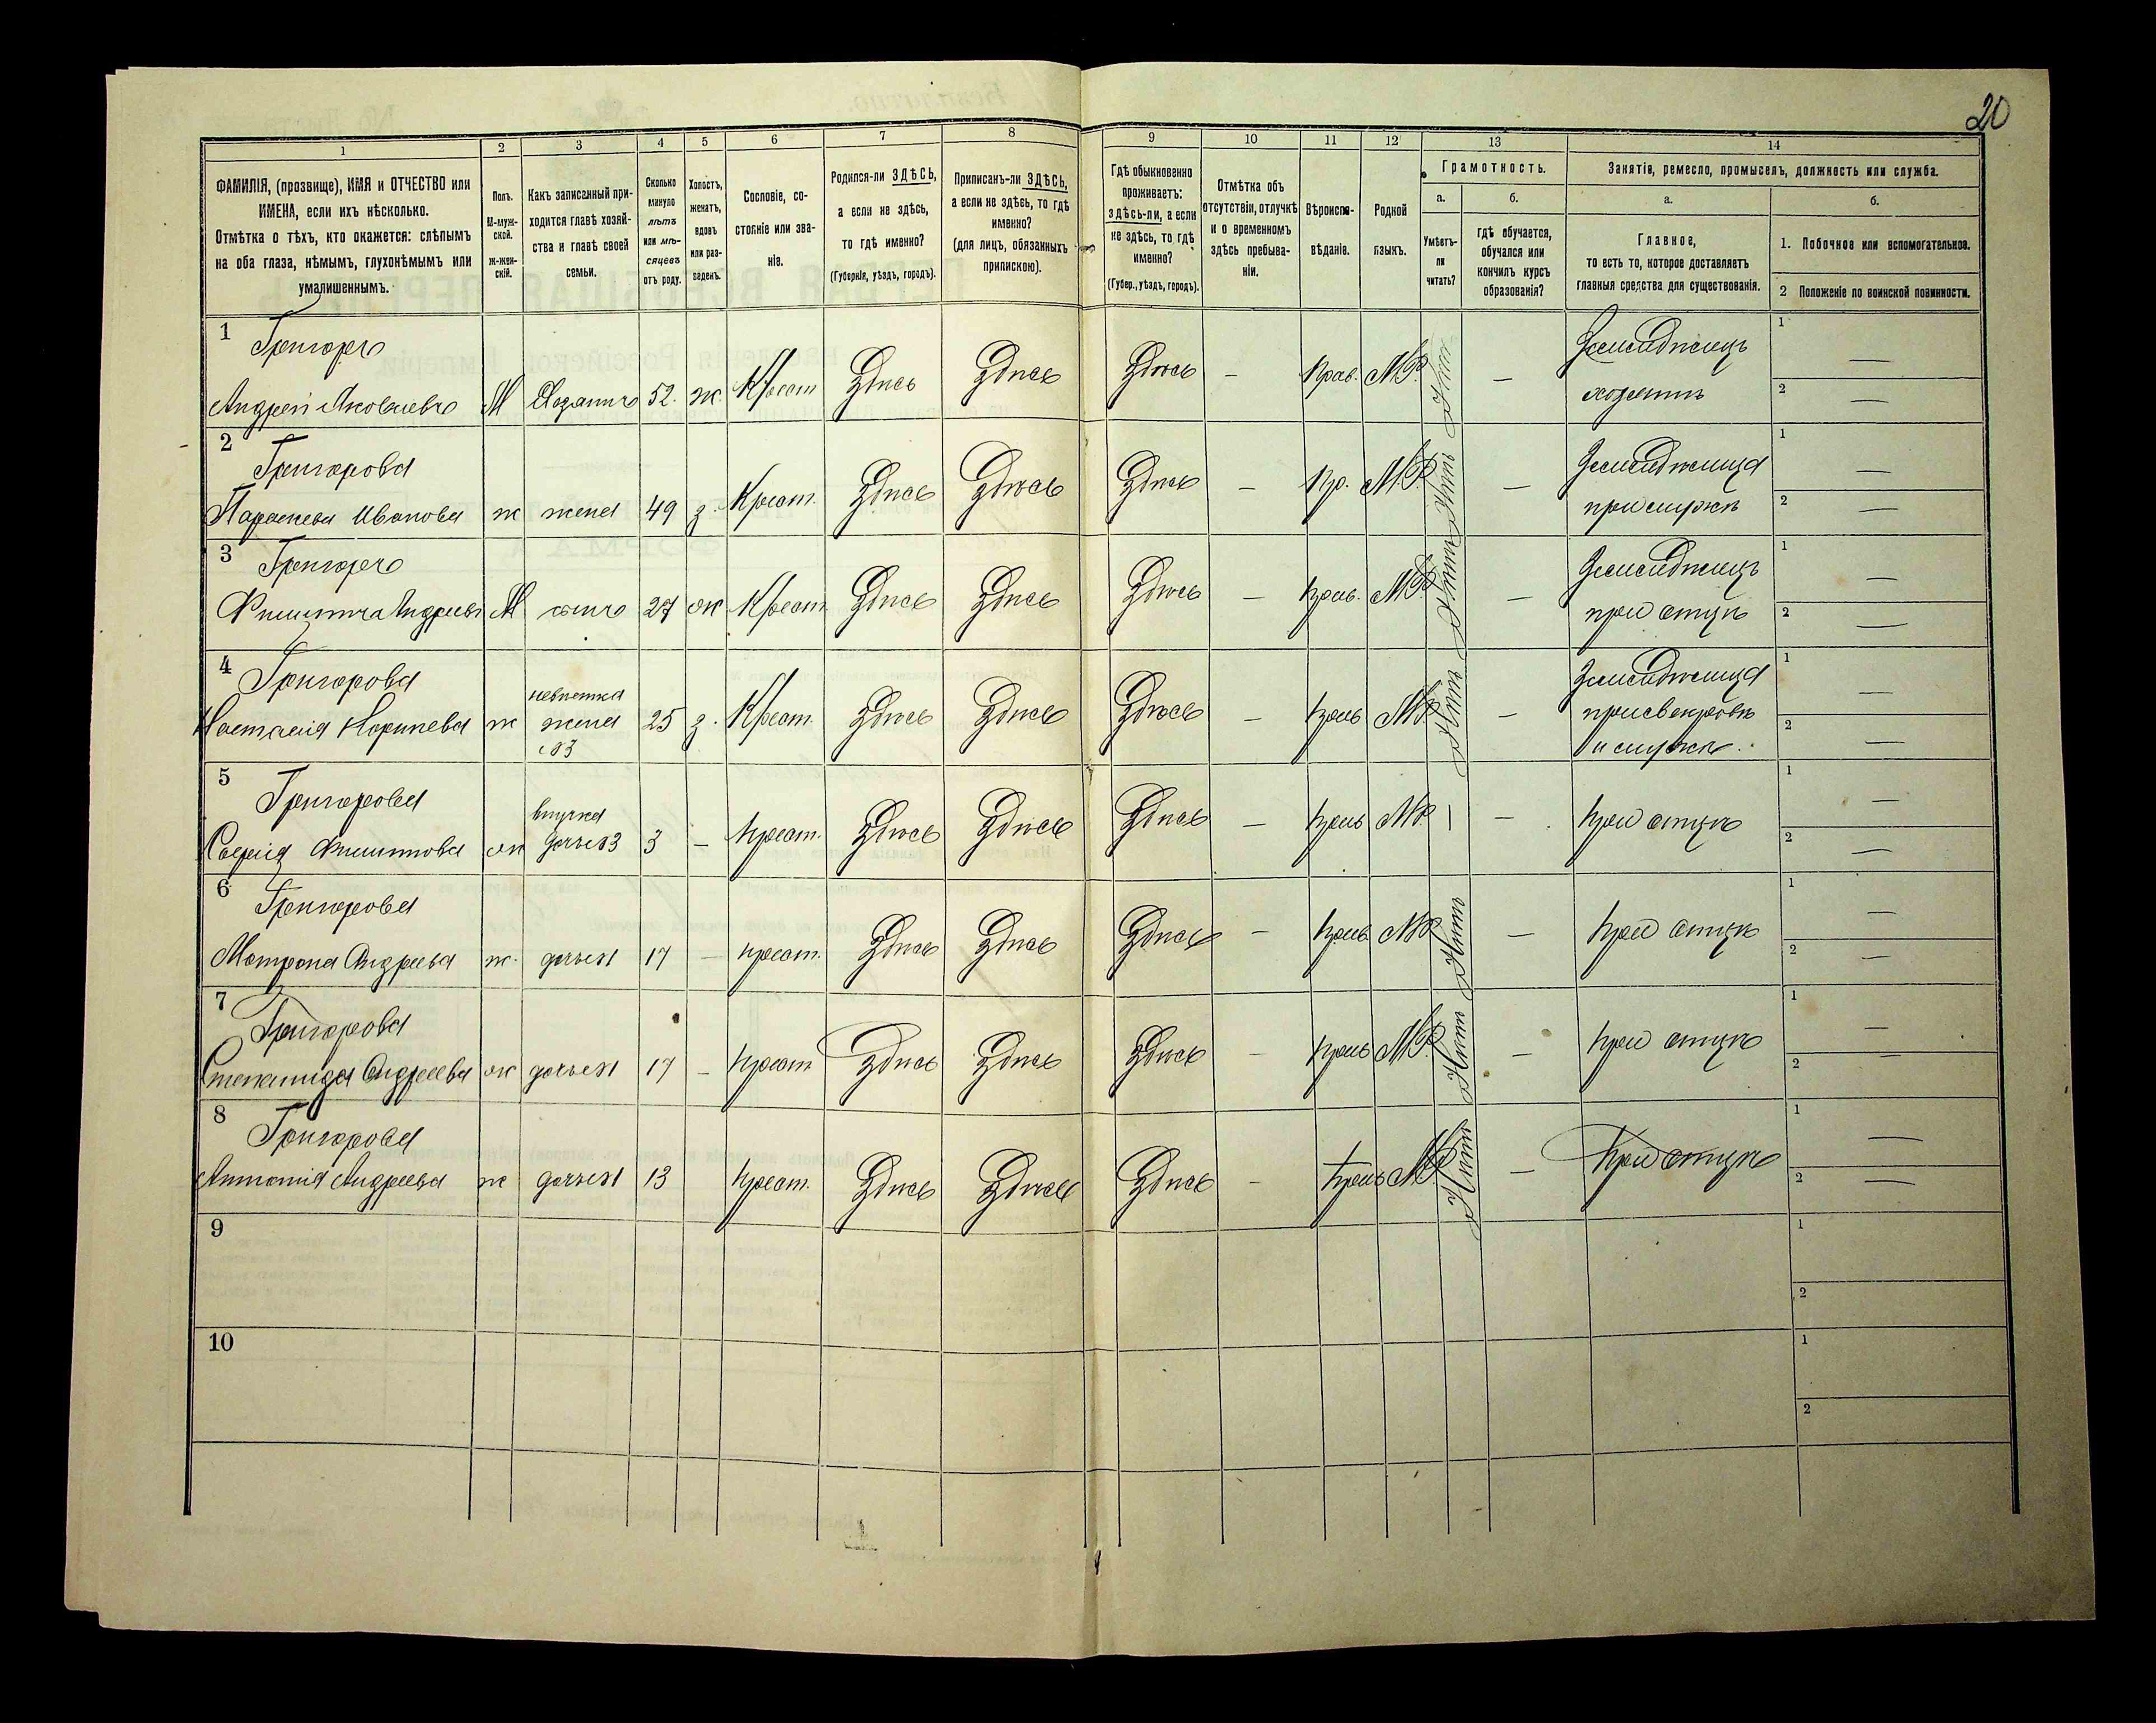 20
1 2 3 4 5 6 7 8 9 10 11 12 13 14
ФАМИЛІЯ, (прозвище), ИМЯ и ОТЧЕСТВО или
ИМЕНА, если ихъ нѣсколько.
Отмѣтка о тѣхъ, кто окажется: слѣпымъ
на оба глаза, нѣмымъ, глухонѣмымъ или
умалишеннымъ.
Полъ.
М-муж-
ской.
ж-жен-
скій.
Какъ записанный при-
ходится главѣ хозяй-
ства и главѣ своей
семьи.
Сколько
минуло
лѣтъ
или мѣ-
сяцевъ
отъ роду.
Холостъ,
женатъ,
вдовъ
или раз-
веденъ.
Сословіе, со-
стояніе или зва-
ніе.
Родился-ли ЗДѢСЬ,
а если не здѣсь,
то гдѣ именно?
(Губернія, уѣздъ, городъ).
Приписанъ-ли ЗДѢСЬ,
а если не здѣсь, то гдѣ
именно?
(для лицъ, обязанныхъ
припискою).
Гдѣ обыкновенно
проживаетъ:
здѣсь-ли, а если
не здѣсь, то гдѣ
именно?
(Губер., уѣздъ, городъ).
Отмѣтка объ
отсутствіи, отлучкѣ
и о временномъ
здѣсь пребыва-
ніи.
Вѣроиспо-
вѣданіе.
Родной
языкъ.
Грамотность.
а.
Умѣетъ-
ли
читать?
б.
гдѣ обучается,
обучался или
кончилъ курсъ
образованія?
Занятіе, ремесло, промыселъ, должность или служба.
а.
Главное,
то есть то, которое доставляетъ
главныя средства для существованія.
б.
1. Побочное или вспомогательное.
2 Положеніе по воинской повинности.
1 Григоръ
Андрей Яковлевъ М Хозяинъ 52. ж. Крест. Здѣсь Здѣсь Здѣсь — Прав. М.Р. Нѣтъ — Земледѣлецъ 1 —
хозяинъ 2 —
2 Григорова
Параскева Иванова ж жена 49 з. Крест. Здѣсь Здѣсь Здѣсь — Пр. М.Р. Нѣтъ — Земледѣлица 1 —
при мужѣ 2 —
3 Григоръ
Филиппъ Андреевъ М сынъ 27 ж Крест. Здѣсь Здѣсь Здѣсь — Прав. М.Р. Нѣтъ — Земледѣлецъ 1 —
при отцѣ 2 —
4 Григорова
невѣстка
Настасія Корнѣева ж жена 25 з. Крест. Здѣсь Здѣсь Здѣсь — Прав М.Р. Нѣтъ — Земледѣлица 1 —
при свекровѣ 2 —
и мужѣ.
5 Григорова
внучка
Софія Филиппова ж дочь 3 3 — Крест. Здѣсь Здѣсь Здѣсь — Прав М.Р. — — При отцѣ 1 —
2 —
6 Григорова
Матрона Андреева ж. дочь 17 — Крест. Здѣсь Здѣсь Здѣсь — Прав М.Р. Нѣтъ — При отцѣ 1 —
2 —
7 Григорова
Степанида Андреева ж дочь 17 — Крест Здѣсь Здѣсь Здѣсь — Прав М.Р. Нѣтъ — При отцѣ 1 —
2 —
8 Григорова
Антонія Андреева ж дочь 13 Крест. Здѣсь Здѣсь Здѣсь — Прав М.Р. Нѣтъ — При отцѣ 1 —
2 —
9 1
2
10 1
2